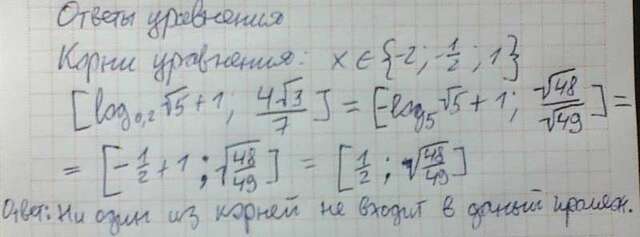 Ответы уравнения
Корни уравнения: x ∈ {-2; -1/2; 1}
[log₀,₂ √5 + 1; 4√3/7] = [-log₅ √5 + 1; √48/√49] =
= [-1/2 + 1; √(48/49)] = [1/2; √(48/49)]
Ответ: Ни один из корней не входит в даный промеж.